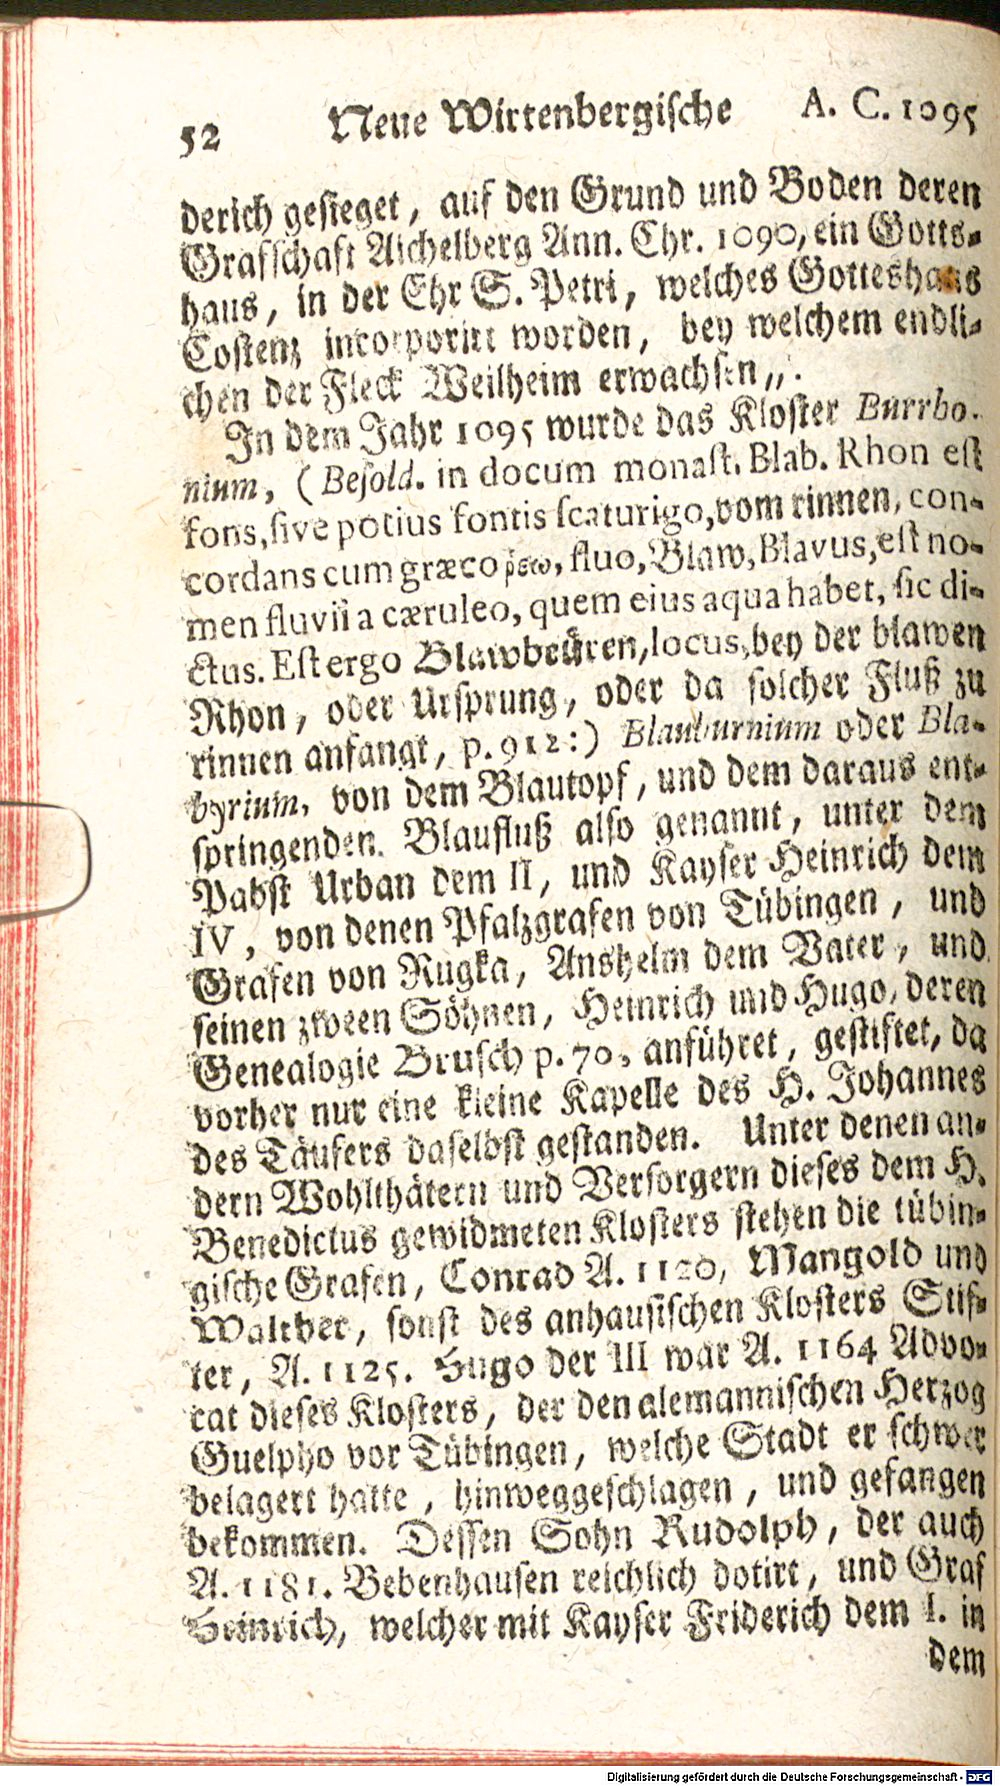 52 Neue Wirtenbergische A. C. 1095
derich gesieget, auf den Grund und Boden deren
Grafschaft Aichelberg Ann. Chr. 1090, ein Gotts-
haus, in der Ehr S. Petri, welches Gotteshaus
Costenz incorporirt worden, bey welchem endli-
chen der Fleck Weilheim erwachsen„.
In dem Jahr 1095 wurde das Kloster Burrho-
nium, (Besold. in docum monast. Blab. Rhon est
fons, sive potius fontis scaturigo, vom rinnen, con-
cordans cum græco ῥεω, fluo, Blaw, Blavus, est no-
men fluvii a cæruleo, quem eius aqua habet, sic di-
ctus. Est ergo Blawbeüren, locus, bey der blawen
Rhon, oder Ursprung, oder da solcher Fluß zu
rinnen anfangt, p. 912:) Blauburnium oder Bla-
byrium, von dem Blautopf, und dem daraus ent-
springenden Blaufluß also genannt, unter dem
Pabst Urban dem II, und Kayser Heinrich dem
IV, von denen Pfalzgrafen von Tübingen, und
Grafen von Rugka, Anshelm dem Vater, und
seinen zween Söhnen, Heinrich und Hugo, deren
Genealogie Brusch p. 70, anführet, gestiftet, da
vorher nur eine kleine Kapelle des H. Johannes
des Täufers daselbst gestanden. Unter denen an-
dern Wohlthätern und Versorgern dieses dem H.
Benedictus gewidmeten Klosters stehen die tübin-
gische Grafen, Conrad A. 1120, Mangold und
Walther, sonst des anhausischen Klosters Stif-
ter, A. 1125. Hugo der III war A. 1164 Advo-
cat dieses Klosters, der den alemannischen Herzog
Guelpho vor Tübingen, welche Stadt er schwer
belagert hatte, hinweggeschlagen, und gefangen
bekommen. Dessen Sohn Rudolph, der auch
A. 1181. Bebenhausen reichlich dotirt, und Graf
Heinrich, welcher mit Kayser Friderich dem I. in
dem
Digitalisierung gefördert durch die Deutsche Forschungsgemeinschaft - DFG